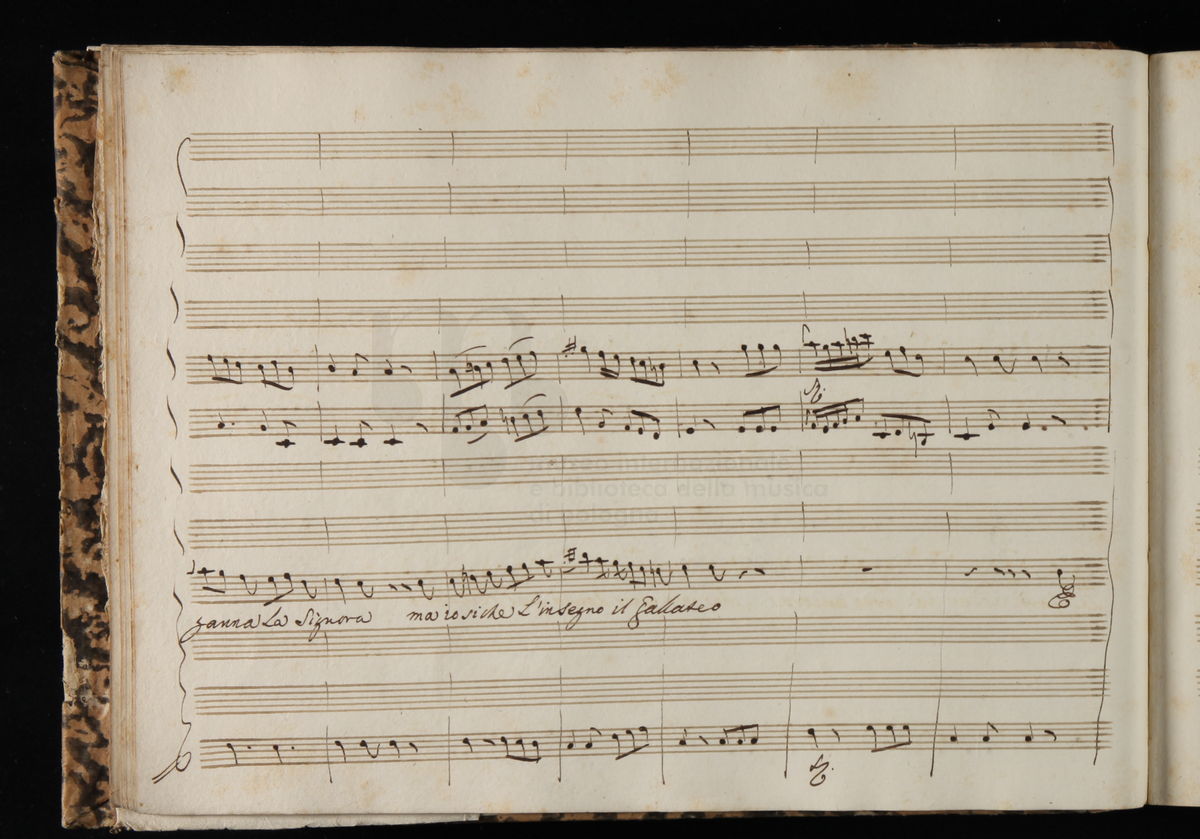 museo internazionale
e biblioteca della musica
di bologna
zanna La Signora ma io si che L'insegno il Gallateo
E